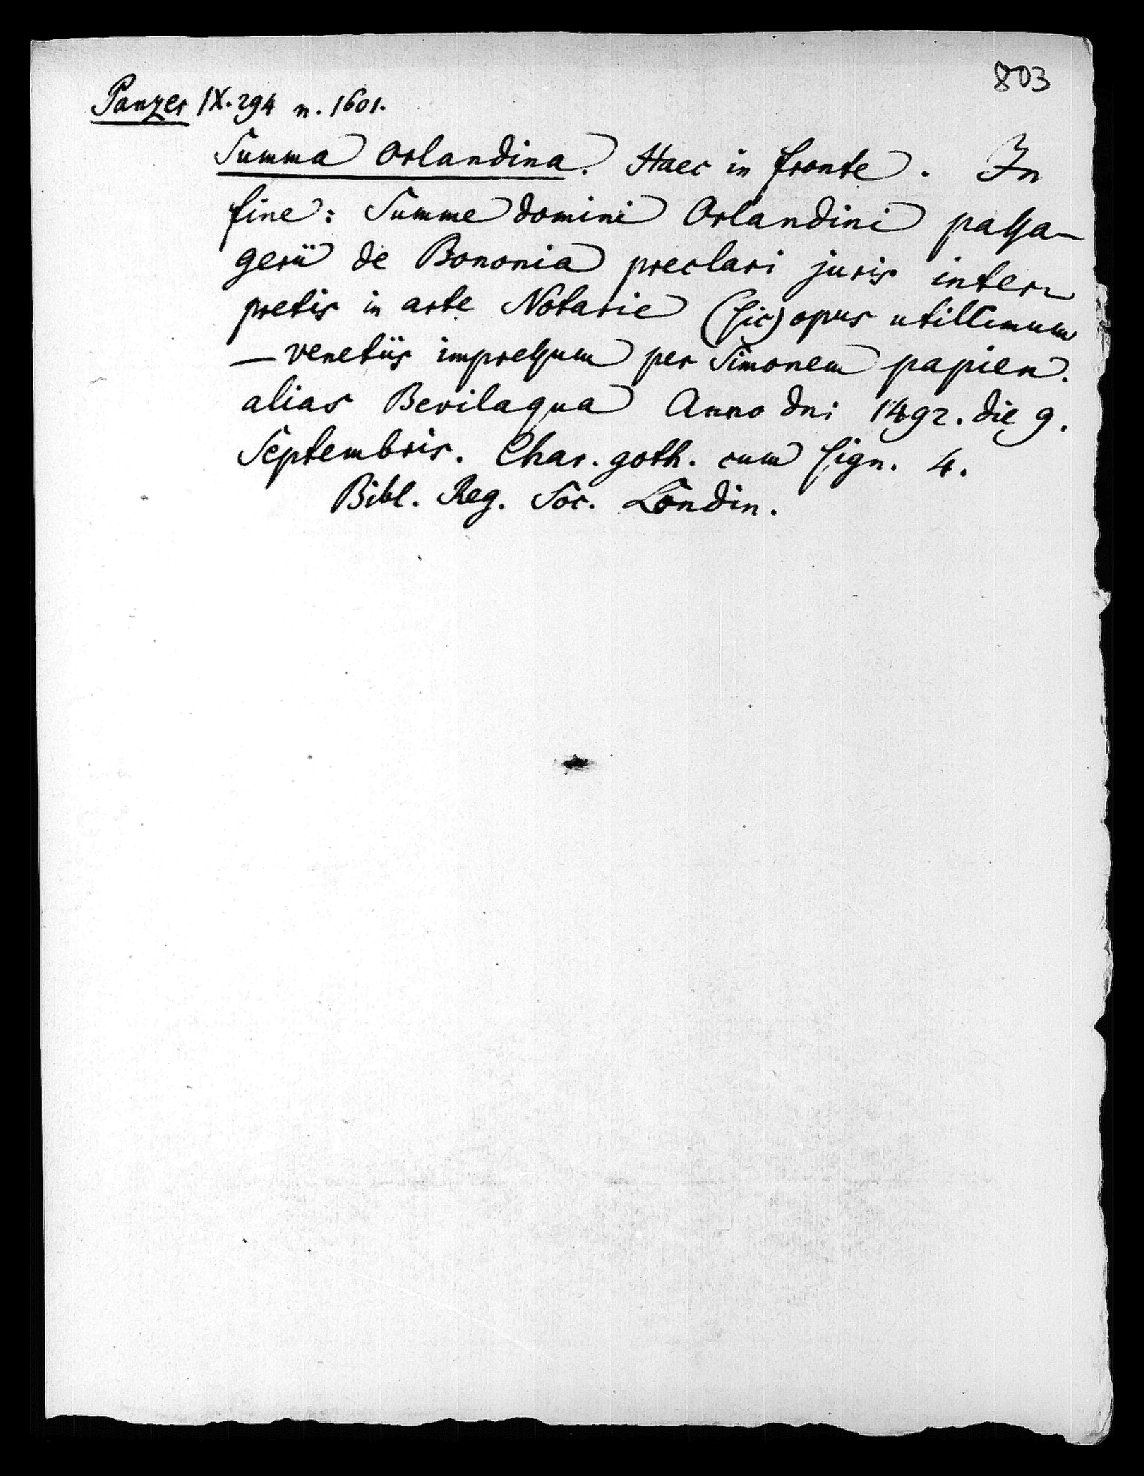 803
Panzer IX. 294 n. 1601.
Summa Orlandina. Haec in fronte. In
fine: Summe domini Orlandini passa-
gerii de Bononia preclari juris inter-
pretis in arte Notarie (sic) opus utilissimum
— venetiis impressum per Simonem papien.
alias Bevilaqua Anno dni 1492. die 9.
Septembris. Char. goth. cum sign. 4.
Bibl. Reg. Soc. Londin.